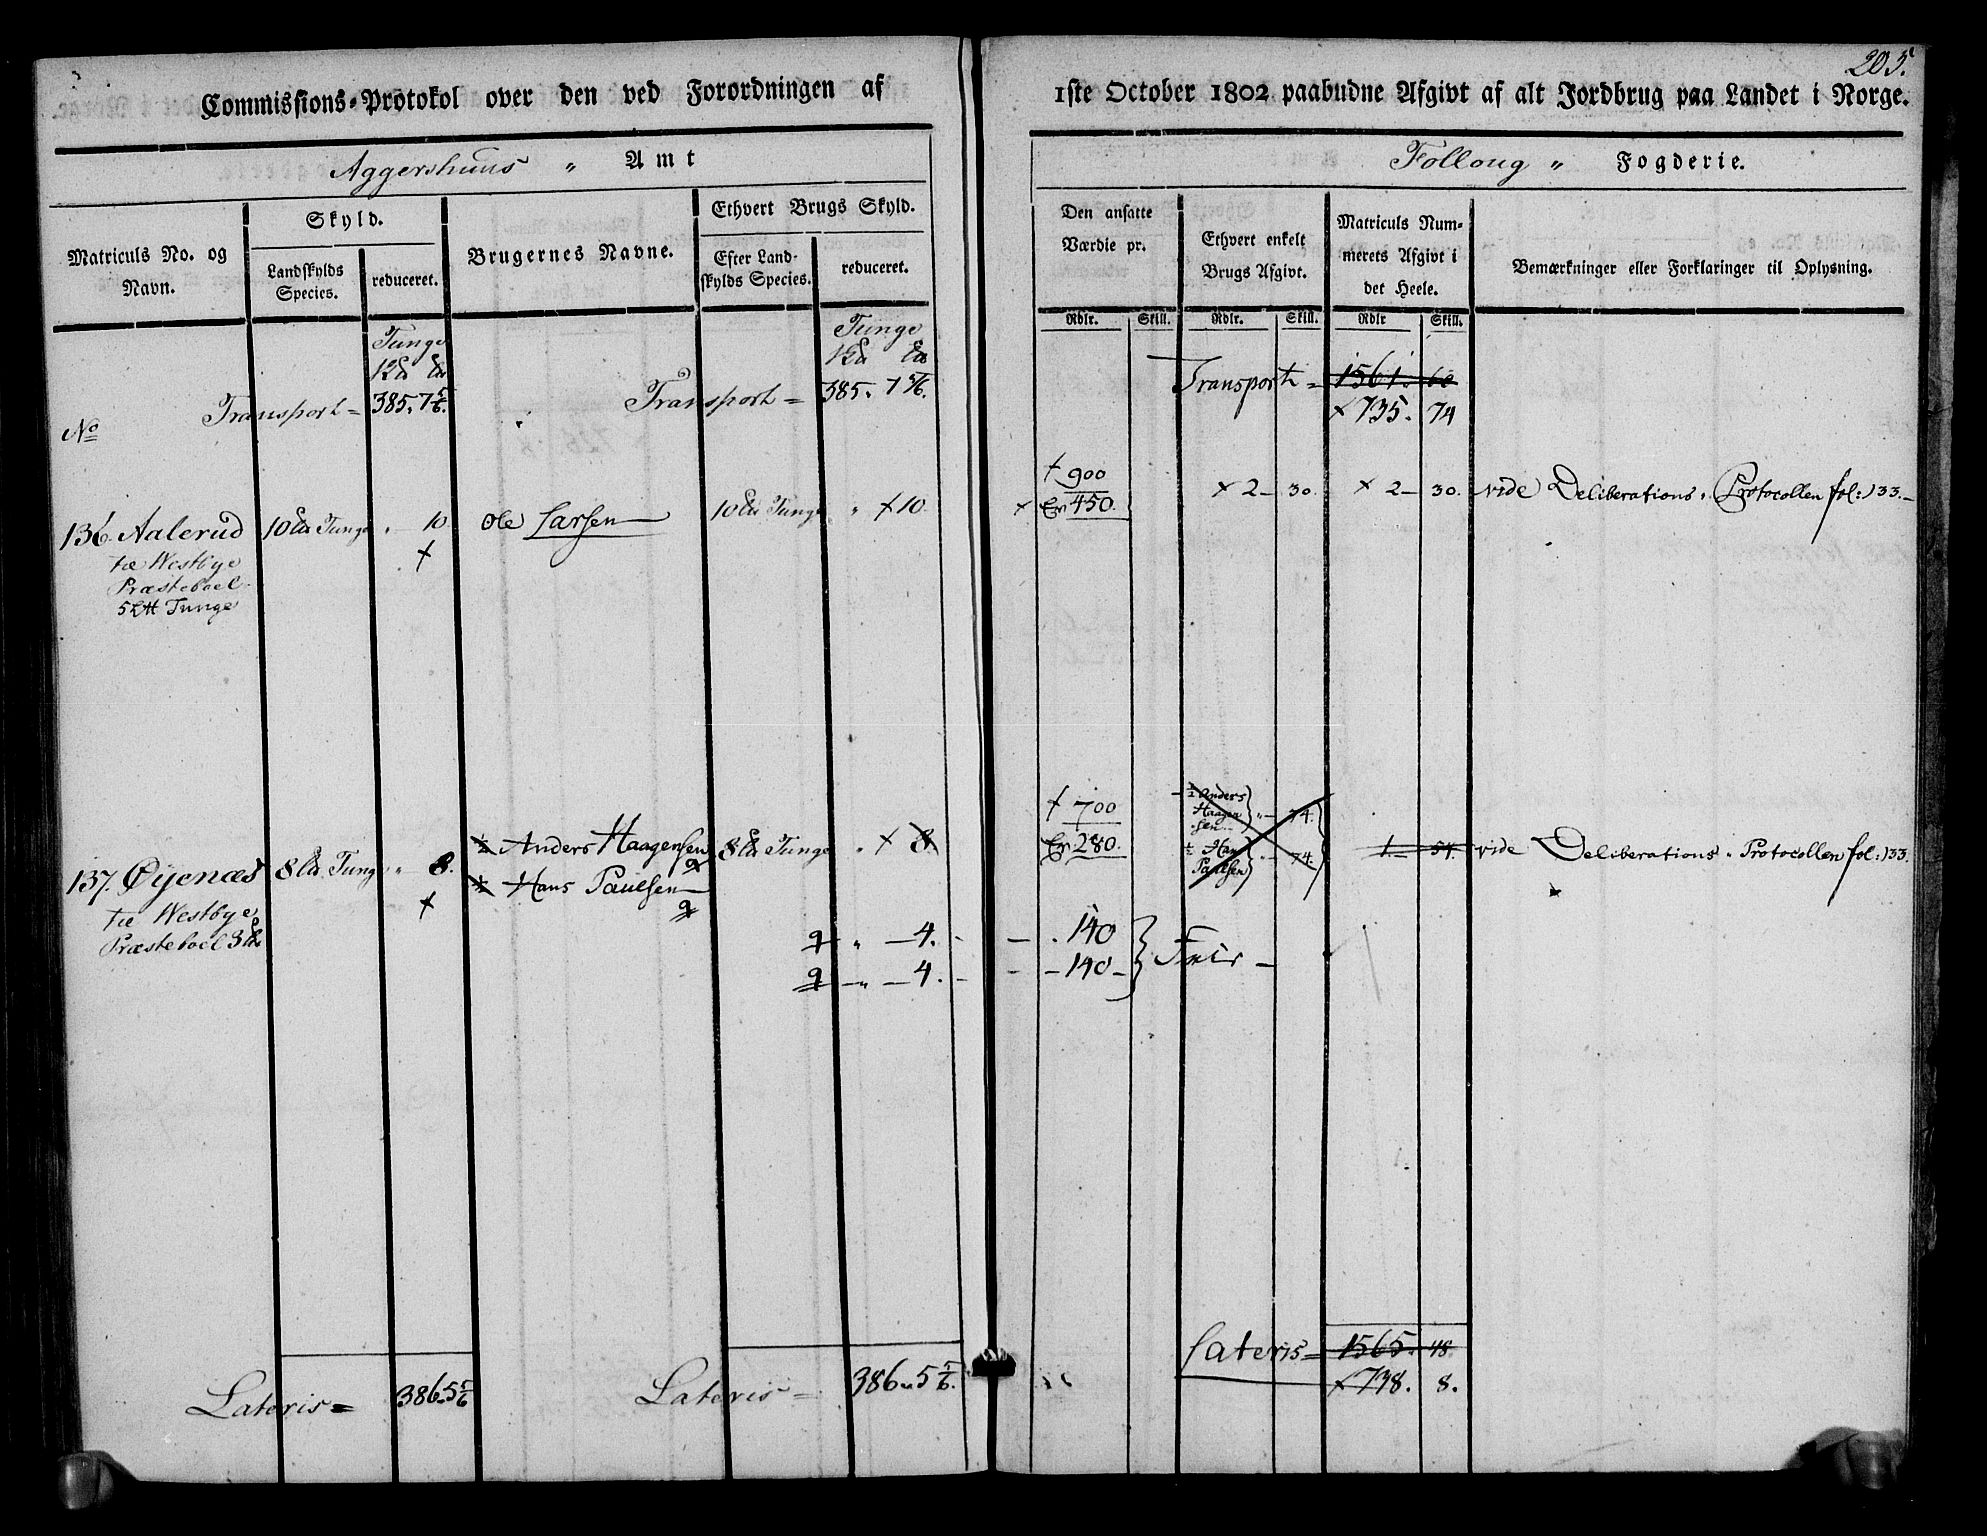 205.
Commissions-Protokol over den ved Forordningen af 1ste October 1802 paabudne Afgivt af alt Jordbrug paa Landet i Norge.
Aggershuus " Amt
Follong " Fogderie.
Matriculs No. og Navn.
Skyld.
Landskylds Species.
reduceret.
Brugernes Navne.
Ethvert Brugs Skyld.
Efter Land-
skylds Species.
reduceret.
Den ansatte
Værdie pr.
Ethvert enkelt
Brugs Afgivt.
Matriculs Num-
merets Afgivt i
det Heele.
Bemærkninger eller Forklaringer til Oplysning.
Rdlr. Skill. Rdlr. Skill. Rdlr Skill.
Tunge
Tunge
Transport = 385. 7 5/6.
Transport = 385. 7 5/6.
Transport = 1561.
× 735. 74
No
136. Aalerud 10 Tunge " 10.
Ole Larsen 10 Tunge " × 10.
† 900
× Er 450. × 2 - 30. × 2 - 30. vide Deliberations Protocollen fol: 133.
Westbye
Præsteboel
5 Tunge
137. Øijenæs 8 Tunge " 8.
1/2 Anders Haagensen 8 Tunge " × 8.
1/2 Hans Paulsen
† 700
Er 280.
1/2 Anders
Haagen
sen " 74.
1/2 Han
Paulsen " 74.
1. 54. vide Deliberations Protocollen fol: 133.
Westbye
Præsteboel 3
" 4. 140
" 4. 140 Frir
Lateris = 386. 5 5/6
Lateris = 386. 5 5/6.
Lateris = 1565. 48.
× 738. 8.